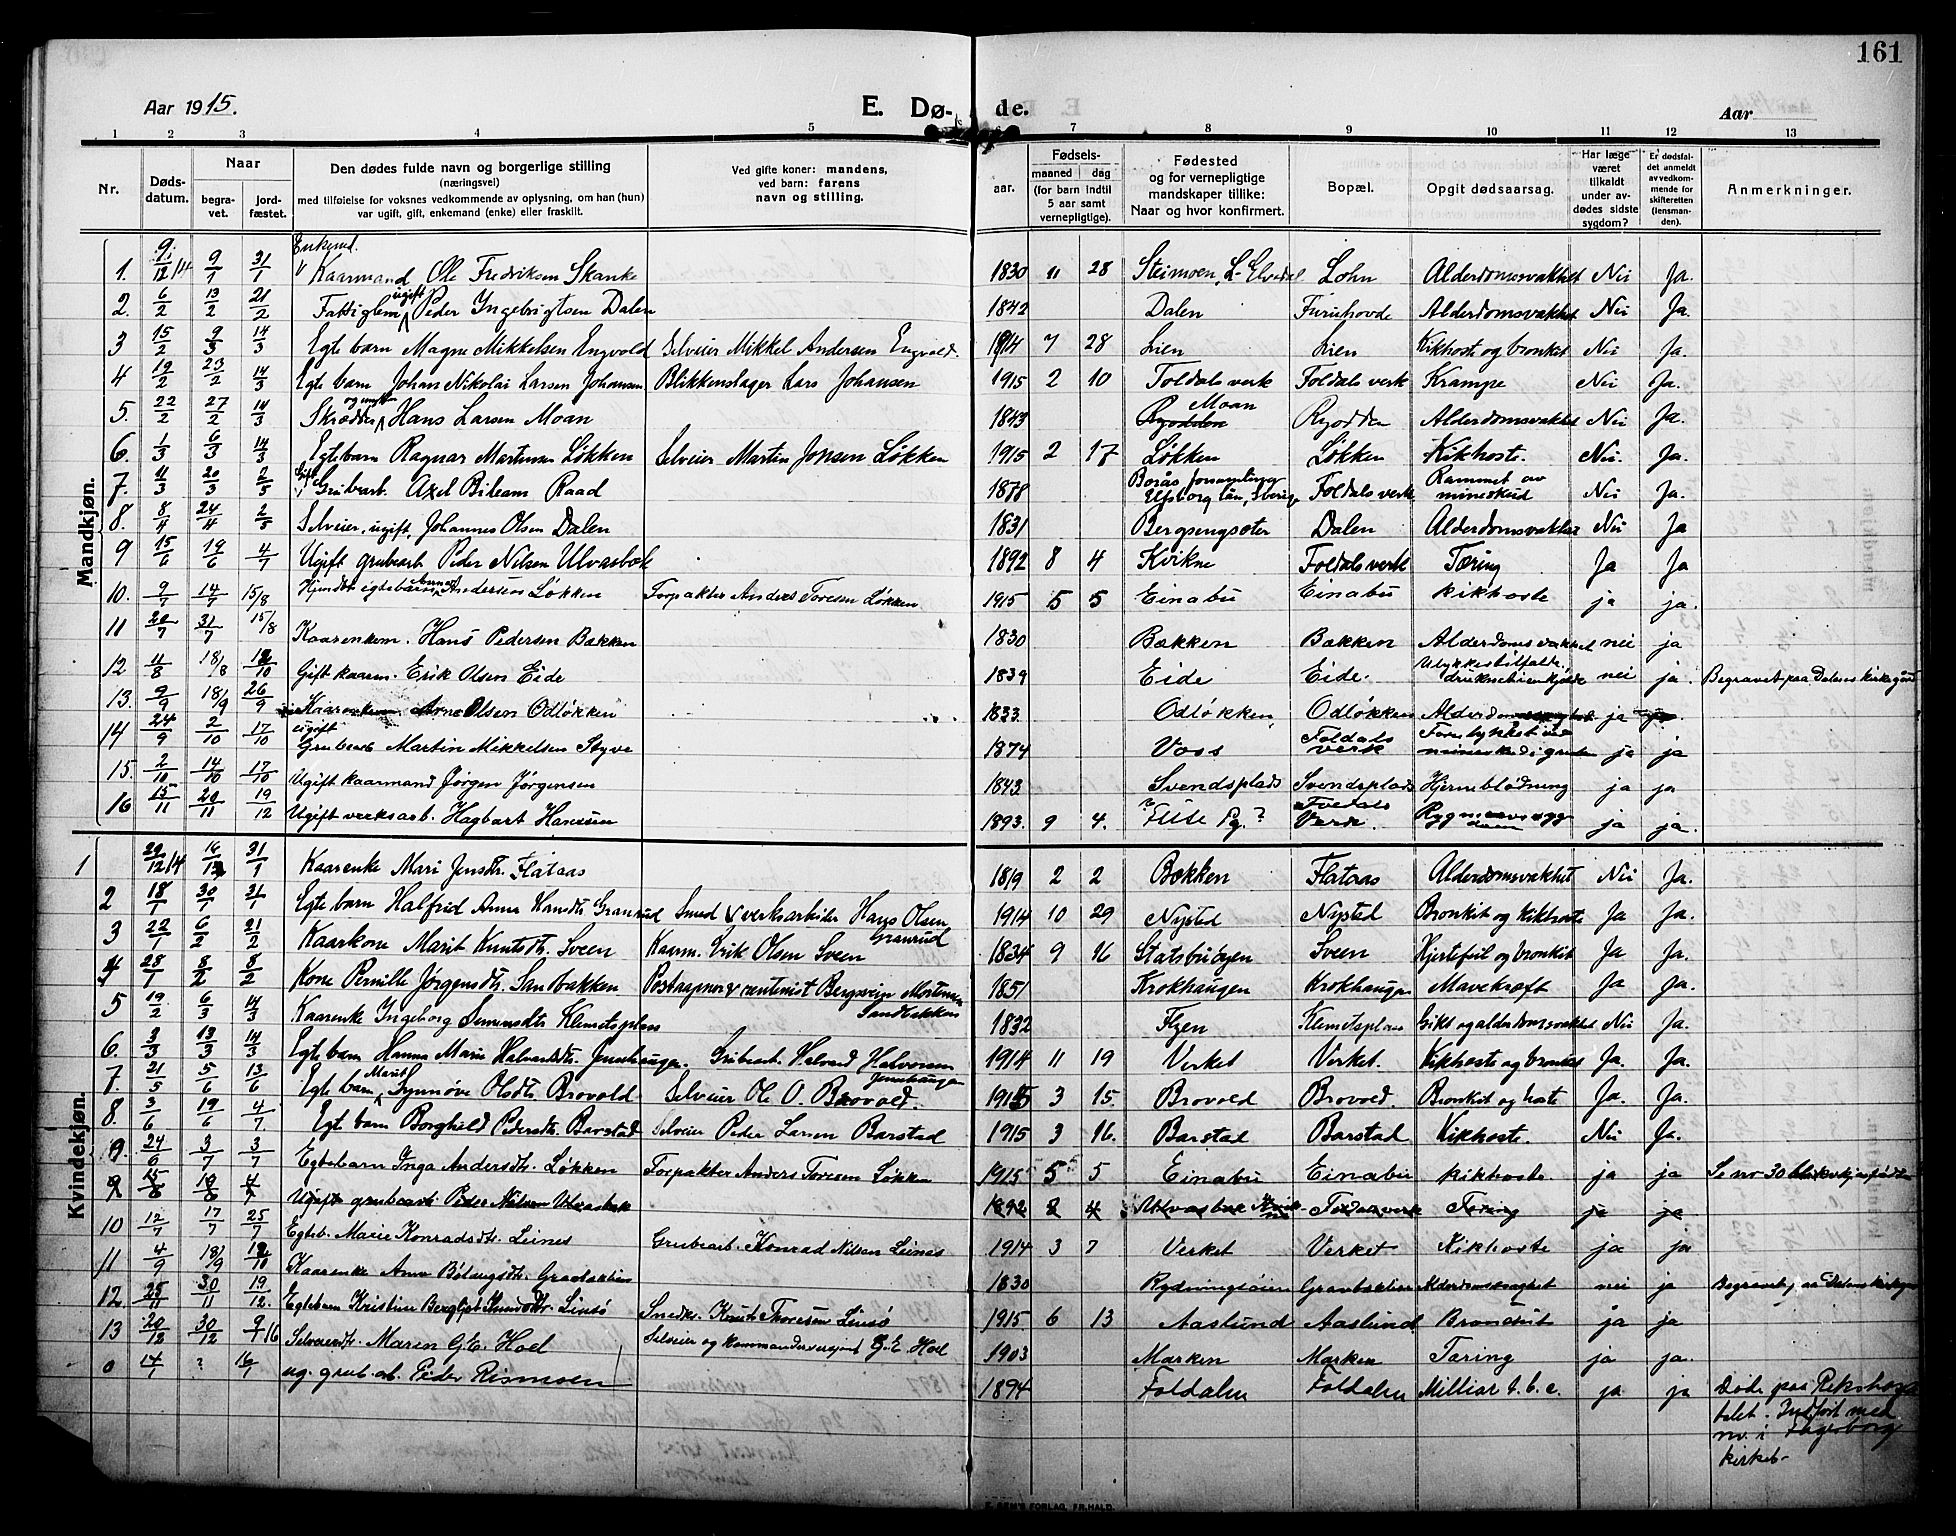 161
Aar 1915.
E. Dø- de.
Aar
1 2 3 4 5 7 8 9 10 11 12 13
Nr.
Døds-datum.
Naar
begra-vet.
jord-fæstet.
Den dødes fulde navn og borgerlige stilling
(næringsvei)
med tilføielse for voksnes vedkommende av oplysning, om han (hun)
var ugift, gift, enkemand (enke) eller fraskilt.
Ved gifte koner: mandens,
ved barn: farens
navn og stilling.
Fødsels-
aar.
maaned dag
(for barn indtil
5 aar samt
vernepligtige).
Fødested
og for vernepligtige
mandskaper tillike:
Naar og hvor konfirmert.
Bopæl.
Opgit dødsaarsag.
Har læge
været
tilkaldt
under av-
dødes sidste
sygdom?
Er dødsfal-
det anmeldt
av vedkom-
mende for
skifteretten
(lensman-
den).
Anmerkninger.
Mandkjøn.
1. 9/12 14 9/1 31/1 Enkemd. Kaarmand Ole Fredriksen Skanke 1830 11 28 Steimoen, L-Elvedal Lohn Alderdomsvakhet Nei Ja.
2. 6/2 13/2 21/2 Fattiglem ugift Peder Ingebrigtsen Dalen 1842 Dalen Furuhovde Alderdomsvakhet Nei Ja.
3 15/2 9/3 14/3 Egte barn Magne Mikkelsen Engvold Selveier Mikkel Andersen Engvold. 1914 7 28 Lien Lien Kikhoste og bronkit Nei Ja.
4 19/2 23/2 14/3 Egte barn Johan Nikolai Larsen Johansen Blikkenslager Lars Johansen 1915 2 10 Foldals verk Foldals verk Krampe Nei Ja.
5. 22/2 27/2 14/3 Skrædder Hans Larsen Moan 1843 Moan Ryodden Alderdomsvakhet Nei Ja.
6. 1/3 6/3 14/3 Egte barn Ragnar Martinsen Løkken Selveier Martin Jonsen Løkken 1915 2 17 Løkken Løkken Kikhoste. Nei Ja.
7. 11/3 20/3 2/5 Grubearb. Axel Bileam Raad 1878 Borås forsamling Elfsborg län, Sverige Foldals verk Rammet av mineskud Nei Ja.
8. 8/4 24/4 2/5 Selveier, ugift, Johannes Olsen Dalen 1831 Bergsengsæter Dalen Alderdomsvakhet Nei Ja
9 15/6 19/6 4/7 Ugift grubearb Peder Nilsen Ulvasbæk 1892 8 4 Kvikne Foldals verk Tæring Ja Ja
10. 9/7 14/7 15/8 Hjemdøbt egtebarn Andersen Løkken Forpakter Anders Toresen Løkken 1915 5 5 Einabu Einabu kikhoste ja ja.
11 20/7 31/7 15/8 Kaarenkem. Hans Pedersen Bakken 1830 Bakken Bakken Alderdomsvakhet nei ja
12 11/8 18/8 12/10 Gift kaarm. Erik Olsen Eide 1839 Eide Eide. Ulykkestilfælde, nei ja. Begravet paa Dalens kirkegård
13. 9/9 18/9 26/9 Kaarenkem Arne Olsen Odløkken 1833. Odløkken Odløkken ja
14 24/9 2/10 17/10 ugift Grubearb Martin Mikkelsen Styve 1874 Voss Foldals verk Forulykket ved mineskud i gruben ja ja
15. 2/10 14/10 17/10 Ugift kaarmand Jørgen Jørgensen 1843. Svendsplads Svendsplads Hjerneblødning ja ja
16 15/11 20/11 19/12 Ugift verksarb. Hagbart Hansen 1893. 9 4. Verk. ja ja.
Kvindekjøn.
1 29/12 14 31/1 Kaarenke Mari Jensdtr. Flataas 1819 2 2 Bakken Flataas Alderdomsvakhet Nei Ja.
2 18/1 30/1 31/1 Egte barn Halfrid Anna Hansdtr. Granrud Smed & verksarbeider Hans Olsen Granrud 1914 10 29 Nystad Nystad Bronkit og kikhoste Ja Ja
3 22/1 6/2 21/2 Kaarkone Marit Knutsdtr. Sveen Kaarm. Erik Olsen Sveen 1834 9 16 Statsbuøyen Sveen Hjertefeil og bronkit Ja Ja.
4 28/1 8/2 8/2 Kone Pernille Jørgensdtr. Sandbakken Postaapner & rentenist Bergsvein Mortensen Sandbakken 1851 Krokhaugen Krokhaugen Mavekræft Ja Ja.
5 19/2 6/3 14/3 Kaarenke Ingeborg Simensdtr Klemetsplass 1832 Flyen Klemetsplass Gikt og alderdomsvakhet Nei Ja.
6. 3/3 13/3 14/3 Egte barn Hanna Marie Halvardsdtr. Jenshaugen Grubearb. Halvard Halvorsen Jenshaugen 1914 11 19 Verket Verket. Kikhoste og bronkit Ja. Ja.
7. 21/5 5/6 13/6 Egte barn Marit Synnøve Olsdtr. Brovold Selveier Ole O. Brovold. 1915 3 15. Brovold Brovold. Bronkit og hoste Ja. Ja.
8. 3/6 19/6 4/7 Egt. barn Borghild Pedersdtr. Barstad Selveier Peder Larsen Barstad 1915 3 16. Barstad Barstad Kikhoste. Nei Ja.
9. 24/6 3/7 3/7 Egtebarn Inga Andersdtr. Løkken Forpakter Anders Toresen Løkken 1915 5 5 Einabu Einabu kikhoste ja ja Se nr 30
9 15/6 19/6 4/7 Ugift grubearb. Peder Nilsen Ulvasbæk 1892 8 4 Foldals verk Tæring ja ja
10 12/7 17/7 25/7 Egteb. Marie Konradsdtr. Leines Grubearb. Konrad Nilsen Leines 1914 3 7 Verket Verket Kikhoste ja ja
11 4/9 18/9 12/10 Kaarenke Anne 1830 Alderdomssvaghet nei ja Begravet paa Dalens kirkeg.
12 25/11 30/11 19/12. Egtebarn Kristine Bergljot Knutsdtr. Linsø Snedk. Knut Thoresen Linsø 1915. 6 13 Aaslund Aaslund Bronchit ja ja
13 20/12 30/12 9/1 16 Selveierdtr. Maren G.E. Hoel Selveier og G.E. Hoel 1903 Marken Marken Tæring ja ja.
0 14/1 ? 16/1 ug. grub.ab. Peder Rismoen 1894 Foldalen Foldalen Milliær t.b.c. ja ja Døde paa Rikshospi-
talet. Indført med
nr. i Fagerborg
kirkeb-
E. SEM'S FORLAG, FR.HALD.